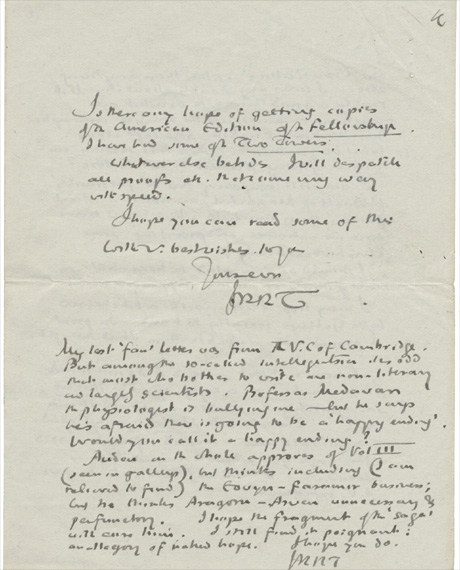 Is there any hope of getting copies
of the American Edition of the Fellowship.
I have had some of the Two Towers.
Whatever else betides I will despatch
all proofs etc. that come my way
with speed.
I hope you can read some of this
With v. best wishes to you
Yours ever
JRRT
My last 'fan' letter was from the V.C. of Cambridge.
But among the so-called intelligentsia it is odd
that most who bother to write are non-literary
and largely scientists. Professor Medawar
the physiologist is bullying me — but he says
he's afraid there is going to be a 'happy ending'.
Would you call it a happy ending?
Auden on the whole approves of Vol III
(seen in galleys), but thinks including (I am
relieved to find) the Eowyn-Faramir business;
but he thinks Aragorn-Arwen unnecessary &
perfunctory. I hope the fragment of the 'saga'
will cure him. I still find it poignant:
an allegory of naked hope. I hope you do.
JRRT